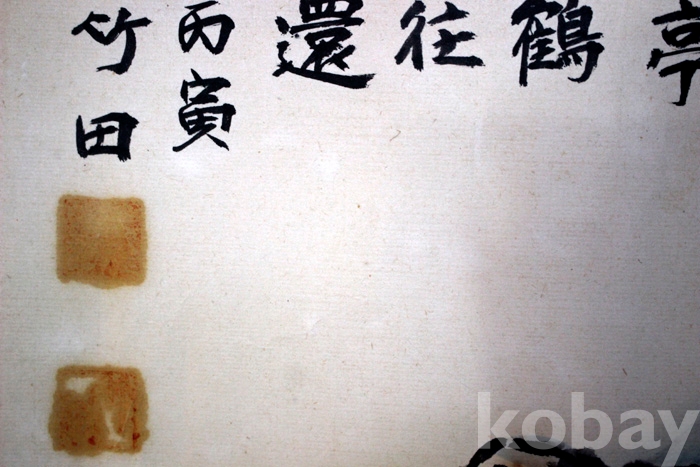 亭
鶴
往
還
丙寅
竹田
kobay